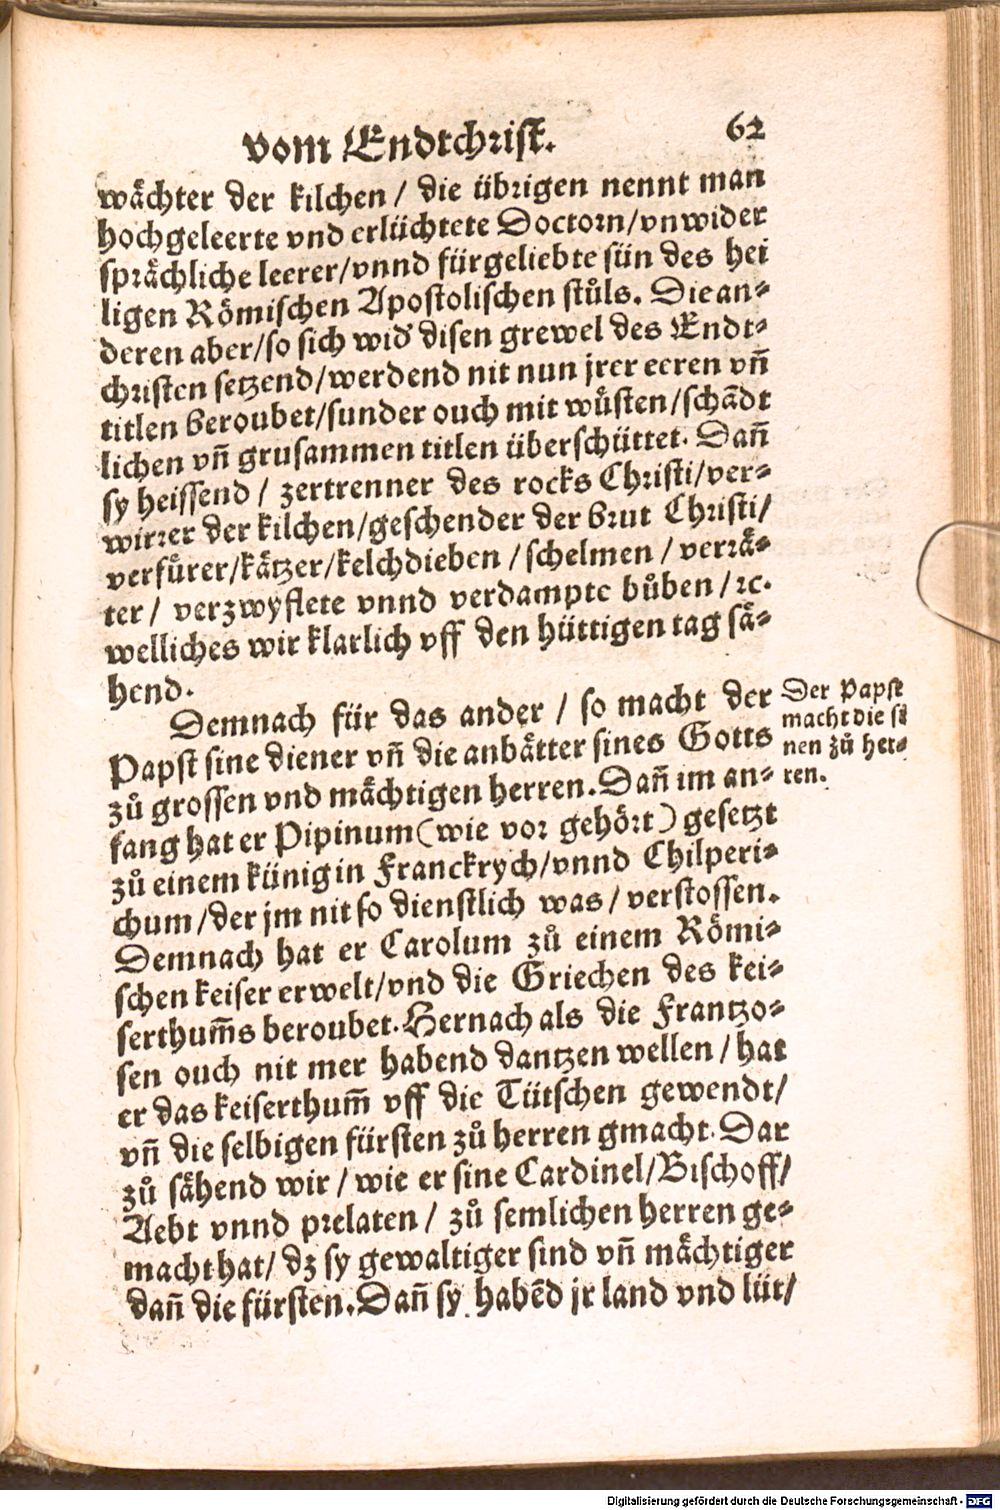 vom Endtchrist. 62
wächter der kilchen / die übrigen nennt man
hochgeleerte vnd erlüchtete Doctorn/vnwider
sprächliche leerer/vnnd fürgeliebte sün des hei
ligen Römischen Apostolischen stůls. Die an-
deren aber/so sich wid' disen grewel des Endt-
christen setzend/werdend nit nun jrer eeren vn̄
titlen beroubet/sunder ouch mit wůsten/schādt
lichen vn̄ grusammen titlen überschüttet. Dan̄
sy heissend / zertrenner des rocks Christi/ver-
wirrer der kilchen/geschender der brut Christi/
verfůrer/kätzer/kelchdieben / schelmen / verrä-
ter / verzwyflete vnnd verdampte bůben / ꝛc.
welliches wir klarlich vff den hüttigen tag sä-
hend.
Demnach für das ander / so macht der
Papst sine diener vn̄ die anbätter sines Gotts
zů grossen vnd mächtigen herren. Dan̄ im an-
fang hat er Pipinum (wie vor gehört) gesetzt
zů einem künig in Franckrych/vnnd Chilperi-
chum/der jm nit so dienstlich was / verstossen.
Demnach hat er Carolum zů einem Römi-
schen keiser erwelt/vnd die Griechen des kei-
serthum̄s beroubet. Hernach als die Frantzo-
sen ouch nit mer habend dantzen wellen / hat
er das keiserthum̄ vff die Tütschen gewendt/
vn̄ die selbigen fürsten zů herren gmacht. Dar
zů sähend wir / wie er sine Cardinel/Bischoff/
Aebt vnnd prelaten / zů semlichen herren ge-
macht hat/ dz sy gewaltiger sind vn̄ mächtiger
dan̄ die fürsten. Dan̄ sy habēd jr land vnd lüt/
Der Papst
macht die si
nen zů her-
ren.
Digitalisierung gefördert durch die Deutsche Forschungsgemeinschaft - DFG